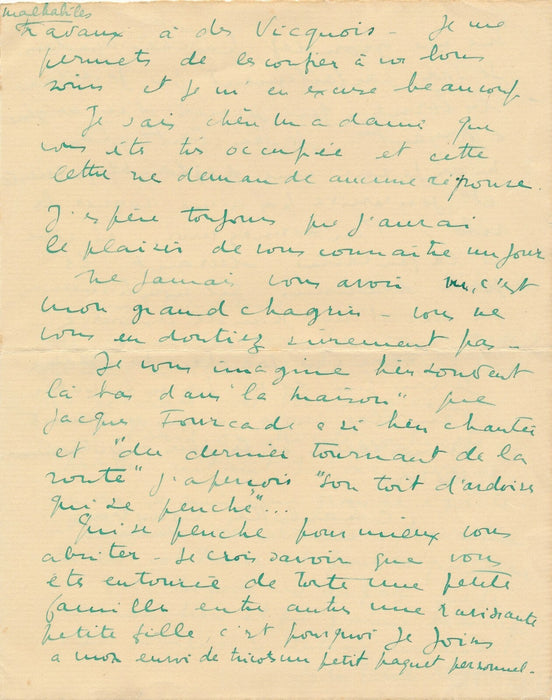 malhabiles
travaux à des Vicquois - Je me
permets de les confier à vos bons
soins et je m'en excuse beaucoup
Je sais chère Madame que
vous êtes très occupée et cette
lettre ne demande aucune réponse.
J'espère toujours que j'aurai
le plaisir de vous connaître un jour
ne jamais vous avoir vue, c'est
mon grand chagrin - vous ne
vous en doutiez sûrement pas -
Je vous imagine bien souvent
là bas dans "la maison" que
Jacques Fourcade a si bien chantée
et "du dernier tournant de la
route" j'aperçois "son toit d'ardoises
qui se penche"...
Qui se penche pour mieux vous
abriter - Je crois savoir que vous
êtes entourée de toute une petite
famille entre autres une ravissante
petite fille, c'est pourquoi je joins
a mon envoi de tricots un petit paquet personnel -